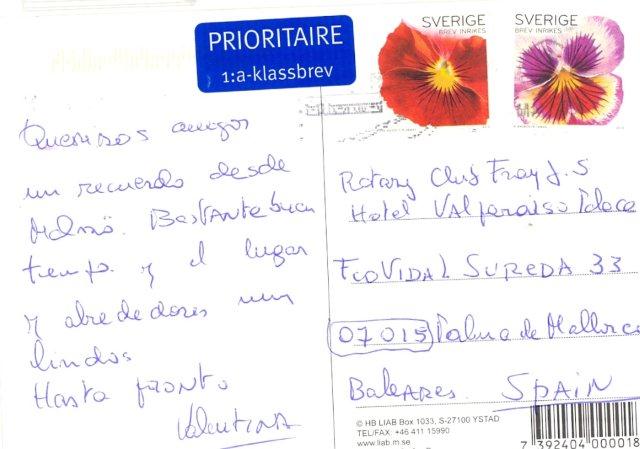 PRIORITAIRE
1:a-klassbrev
SVERIGE
BREV INRIKES
SVERIGE
BREV INRIKES
Queridos amigos
un recuerdo desde
Malmö. Bastante buen
tiempo y el lugar
y alrededores muy
lindos
Hasta pronto
Valentina
Rotary Club Fray J. S
Hotel Valparaiso Palace
Fco VIDAL SUREDA 33
07015 Palma de Mallorca
Baleares. SPAIN
© HB LIAB Box 1033, S-27100 YSTAD
TEL/FAX: +46 411 15990
www.liab.m.se
7 392404 000018